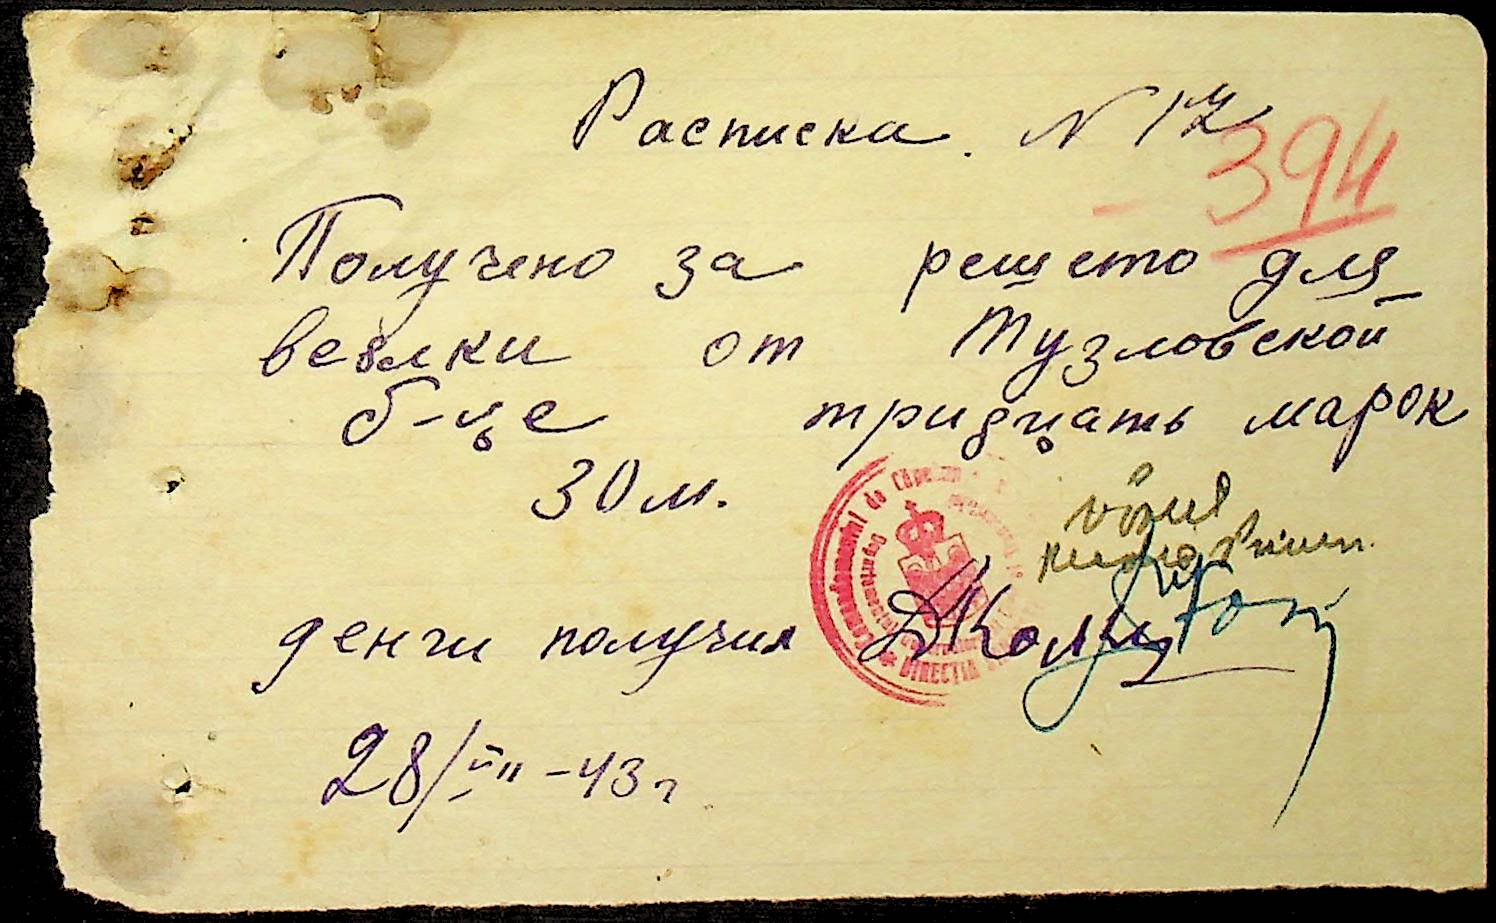 Расписка. N 17
394
Получено за решето для
веялки от Тузловской
б-це тридцать марок
30 м.
деньги получил ДКолц
28/VII - 43 г
DIRECTIA